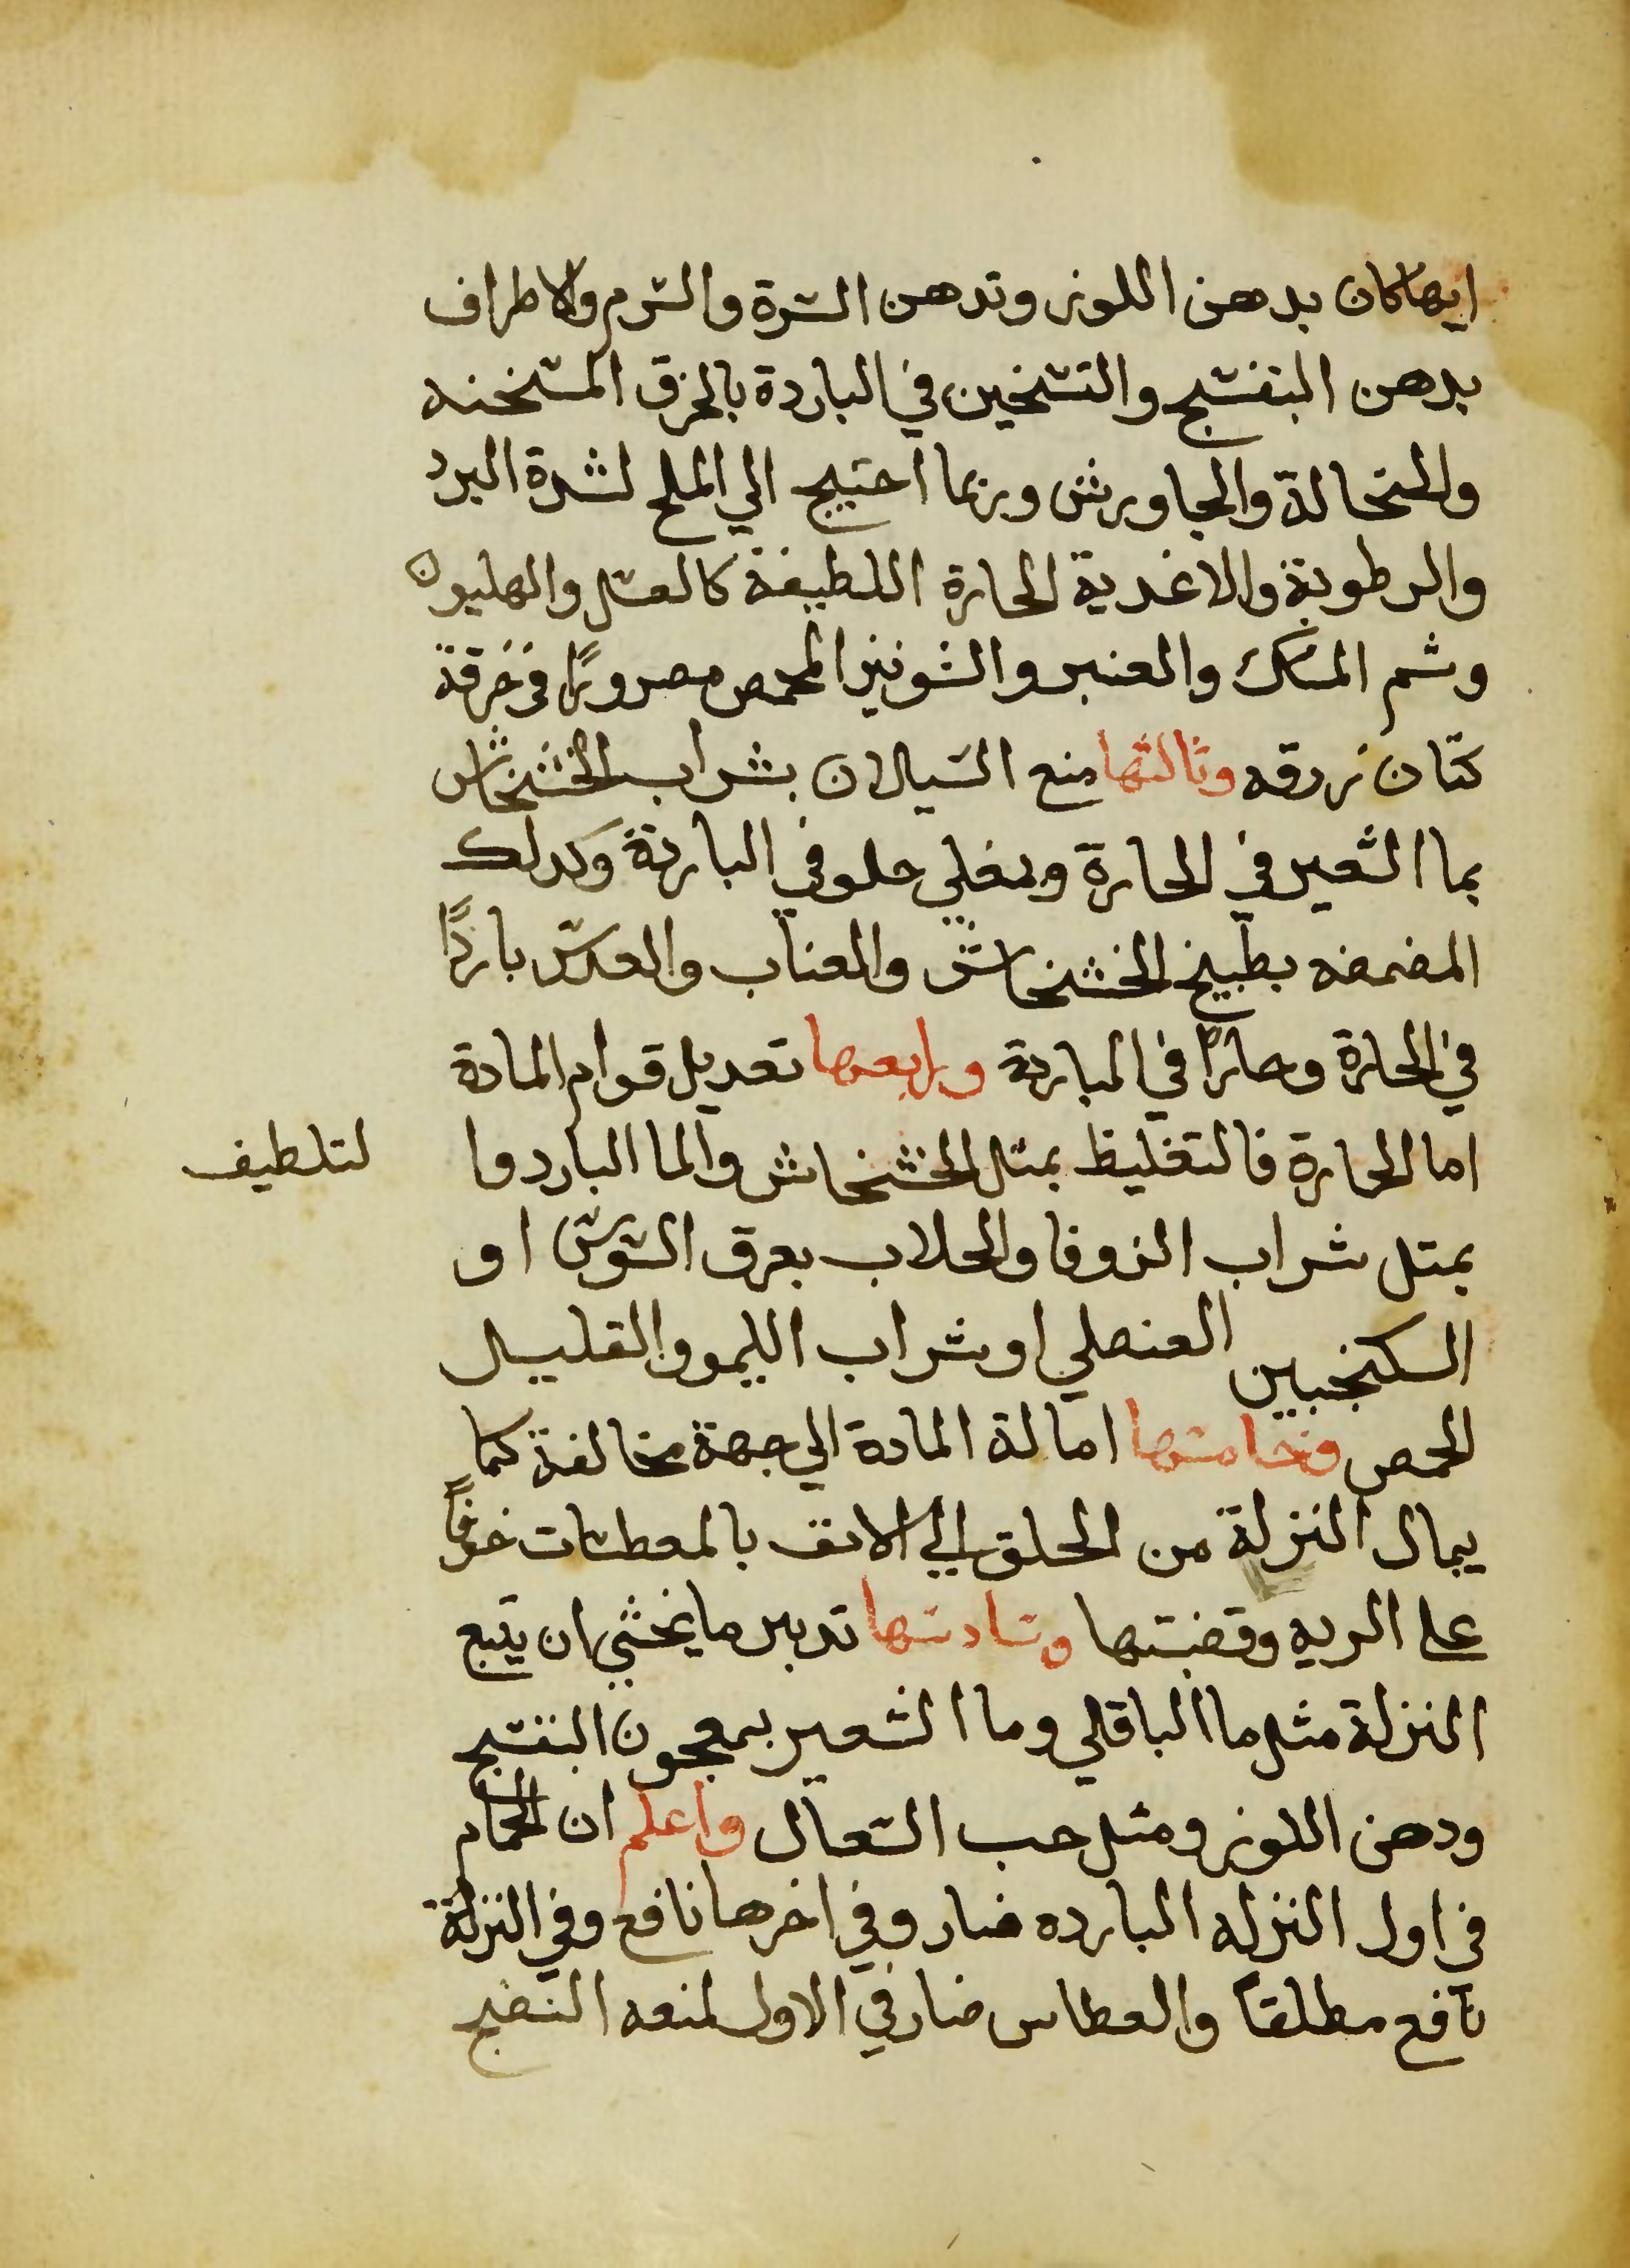 ايها كان بدهن اللوز وتدهن السرة والشرم والاطراف
بدهن البنفسج والتسخين في الباردة بالخرق المسخنه
والنخالة والجاورش وربما احتيج الي الملح لشدة البرد
والرطوبة والاغدية الحارة اللطيفة كالعسل والهليون
وشم المسك والعنبر والشونيز المحمص مصرورًا في خرقة
كتان زرقه وثالثها منع السيلان بشراب الخشخاش
بما الشعير في الحارة ومغلي حلو في الباردة وكدلك
المضمضه بطبيخ الخشخاش والعناب والعدس باردًا
في الحارة وحارًا في الباردة ورابعها تعديل قوام المادة
اما الحارة فالتغليظ بمتل الخشخاش والما البارد وا لتلطيف
بمتل شراب الزوفا والجلاب بعرق السوس او
السكنجبين العنصلي او شراب الليمو والقليل
الحمص وخامسها امالة المادة الي جهة مخالفة كما
يمال النزلة من الحلق الي الانف بالمعطسات خوفًا
علي الريه وقصبتها وسادسها تدبير ما يخشي ان يتبع
النزلة مثل ما الباقلي وما الشعير بمعجون البنفسج
ودهن اللوز ومثل حب السعال واعلم ان الحمام
في اول النزله البارده ضار وفي اخرها نافع وفي النزلة
نافع مطلقاً والعطاس ضار في الاول لمنعه النضج